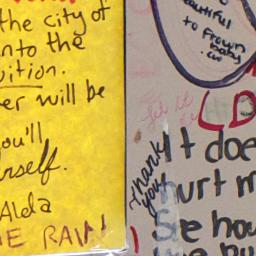 the city of
into the
uition.
er will be
you'll
urself.
Alda
E RAW
beautiful
to frown
baby
.cw
Thank
you!
It doe
hurt m
See how